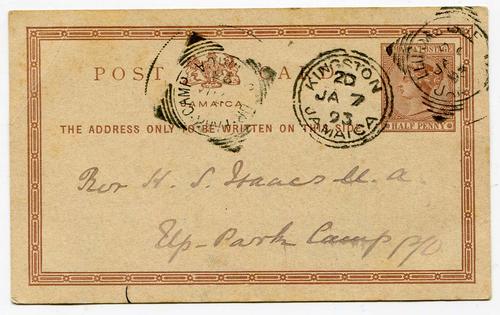 POST CARD
JAMAICA
THE ADDRESS ONLY TO BE WRITTEN
HALF PENNY
KINGSTON
2D
JA 7
93
JAMAICA
CAMP
Rev H. S. Isaacs M. A.
Up-Park Camp P/O